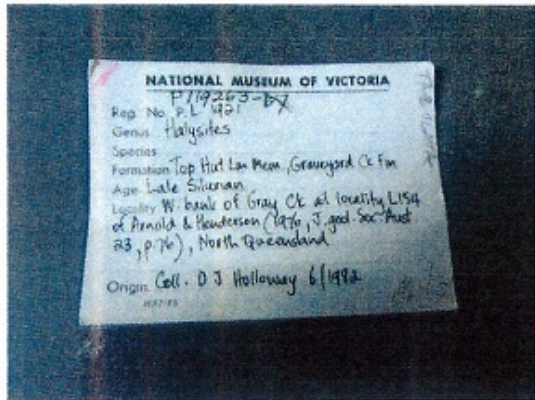 NATIONAL MUSEUM OF VICTORIA
Reg. No. P.L 1921
Genus Halysites
Species
Formation Top Hut Lm Mem, Graveyard Ck Fm
Age Late Silurian
Locality W. bank of Gray Ck at locality L154
of Arnold & Henderson (1976, J. geol. Soc. Aust
23, p.76), North Queensland
Origin Coll. D J Holloway 6/1982